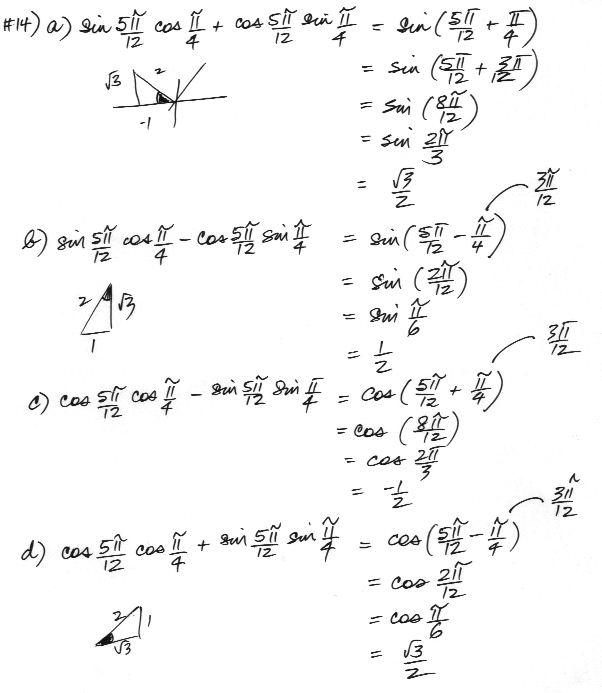 #14) a) sin 5π/12 cos π/4 + cos 5π/12 sin π/4 = sin (5π/12 + π/4)
= sin (5π/12 + 3π/12)
√3 2 -1
= sin (8π/12)
= sin 2π/3
= √3/2
3π/12
b) sin 5π/12 cos π/4 - cos 5π/12 sin π/4 = sin (5π/12 - π/4)
= sin (2π/12)
2 √3 1
= sin π/6
= 1/2
3π/12
c) cos 5π/12 cos π/4 - sin 5π/12 sin π/4 = cos (5π/12 + π/4)
= cos (8π/12)
= cos 2π/3
= -1/2
3π/12
d) cos 5π/12 cos π/4 + sin 5π/12 sin π/4 = cos (5π/12 - π/4)
= cos 2π/12
2 1 √3
= cos π/6
= √3/2